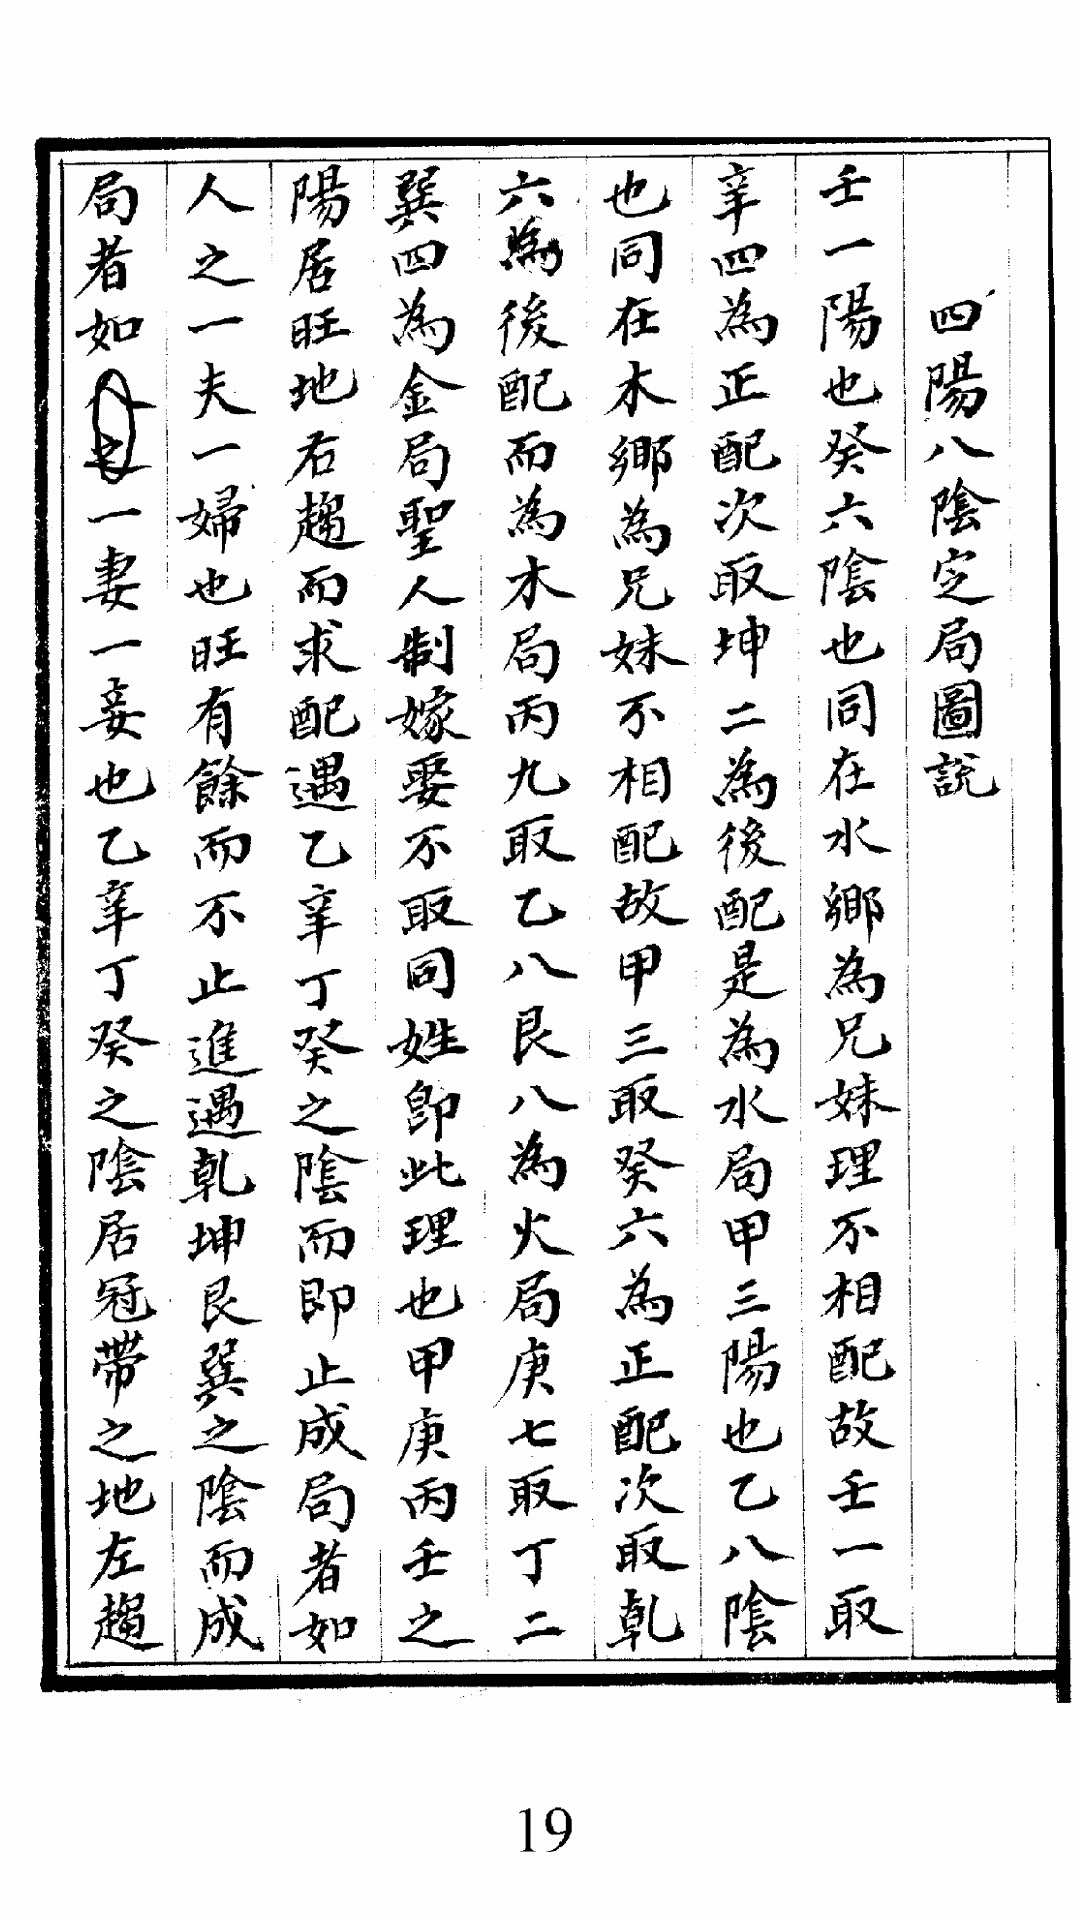 四陽八陰定局圖說
壬一陽也癸六陰也同在水鄉為兄妹理不相配故壬一取
辛四為正配次取坤二為後配是為水局甲三陽也乙八陰
也同在木鄉為兄妹不相配故甲三取癸六為正配次取乾
六為後配而為木局丙九取乙八艮八為火局庚七取丁二
巽四為金局聖人制嫁娶不取同姓卽此理也甲庚丙壬之
陽居旺地右趨而求配遇乙辛丁癸之陰而即止成局者如
人之一夫一婦也旺有餘而不止進遇乾坤艮巽之陰而成
局者如人之一妻一妾也乙辛丁癸之陰居冠帶之地左趨
19